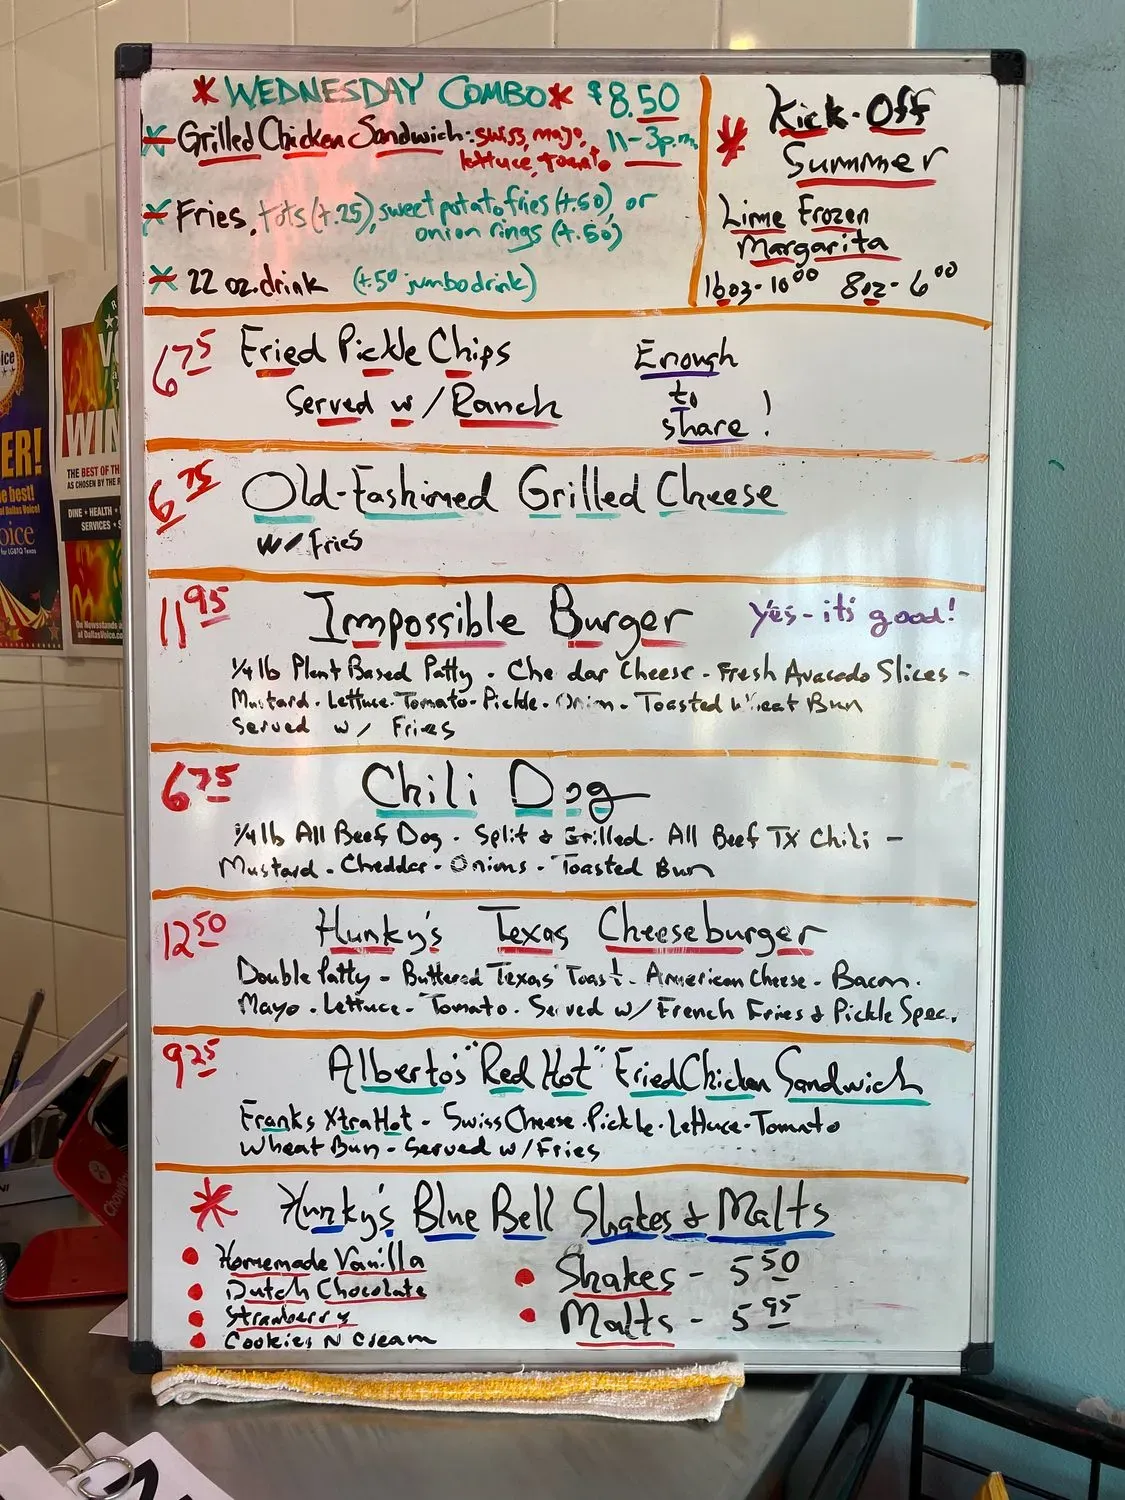 * WEDNESDAY COMBO * $8.50
* Grilled Chicken Sandwich: swiss, mayo, 11-3p.m.
lettuce, tomato
* Fries, tots (+.25), sweet potato fries (+.50), or
onion rings (+.50)
* 22 oz. drink (+.50 jumbo drink)
* Kick-Off
Summer
Lime Frozen
Margarita
16oz - 10⁰⁰ 8oz - 6⁰⁰
6⁷⁵ Fried Pickle Chips
Served w/ Ranch
Enough
to
share!
6⁷⁵ Old-Fashioned Grilled Cheese
w/ Fries
11⁹⁵ Impossible Burger Yes - it's good!
1/4 lb Plant Based Patty - Che dar Cheese - Fresh Avacado Slices -
Mustard - Lettuce - Tomato - Pickle - Onion - Toasted Wheat Bun
Served w/ Fries
6⁷⁵ Chili Dog
1/4 lb All Beef Dog - Split & Grilled - All Beef TX Chili -
Mustard - Cheddar - Onions - Toasted Bun
12⁵⁰ Hunky's Texas Cheeseburger
Double Patty - Buttered Texas Toast - American Cheese - Bacon -
Mayo - Lettuce - Tomato - Served w/ French Fries & Pickle Spec.
9²⁵ Alberto's "Red Hot" Fried Chicken Sandwich
Franks XtraHot - Swiss Cheese - Pickle - Lettuce - Tomato
Wheat Bun - Served w/ Fries
* Hunky's Blue Bell Shakes & Malts
• Homemade Vanilla
• Dutch Chocolate
• Strawberry
• Cookies N Cream
• Shakes - 5⁵⁰
• Malts - 5⁹⁵
ER!
e best!
oice
WIN
THE BEST OF TH
AS CHOSEN BY THE R
DINE • HEALTH •
SERVICES •
On Newsstands
at DallasVoice.co